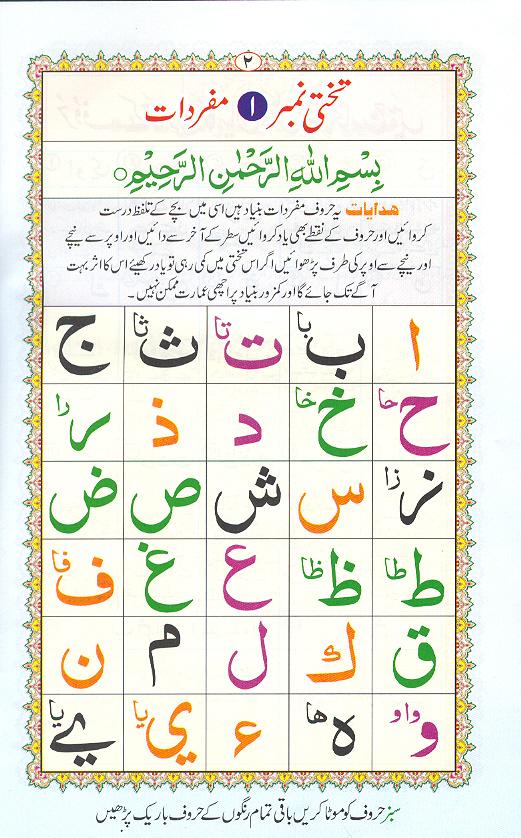 ۲
تختی نمبر ۱ مفردات
بِسْمِ اللهِ الرَّحْمٰنِ الرَّحِيْمِ ○
هدایات یہ حروف مفردات بنیاد ہیں اسی میں بچے کے تلفظ درست
کروائیں اور حروف کے نقطے بھی یاد کروائیں سطر کے آخر سے دائیں اور اوپر سے نیچے
اور نیچے سے اوپر کی طرف پڑھوائیں اگر اس تختی میں کمی رہی تو یاد رکھیئے اس کا اثر بہت
آگے تک جائے گا اور کمزور بنیاد پر اچھی عمارت ممکن نہیں۔
ا ب با ت تا ث ثا ج
ح حا خ خا د ذ ر را
ز زا س ش ص ض
ط طا ظ ظا ع غ ف فا
ق ك ل م ن
و واو ه ها ء ي يا ے يا
سبز حروف کو موٹا کریں باقی تمام رنگوں کے حروف باریک پڑھیں